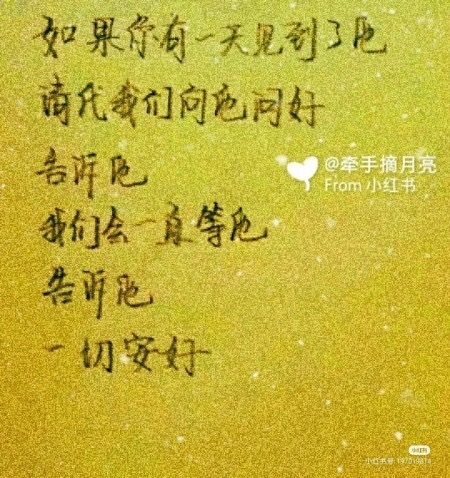 如果你有一天见到了他
请代我们向他问好
告诉他
@牵手摘月亮
From 小红书
我们会一直等他
告诉他
一切安好
小红书